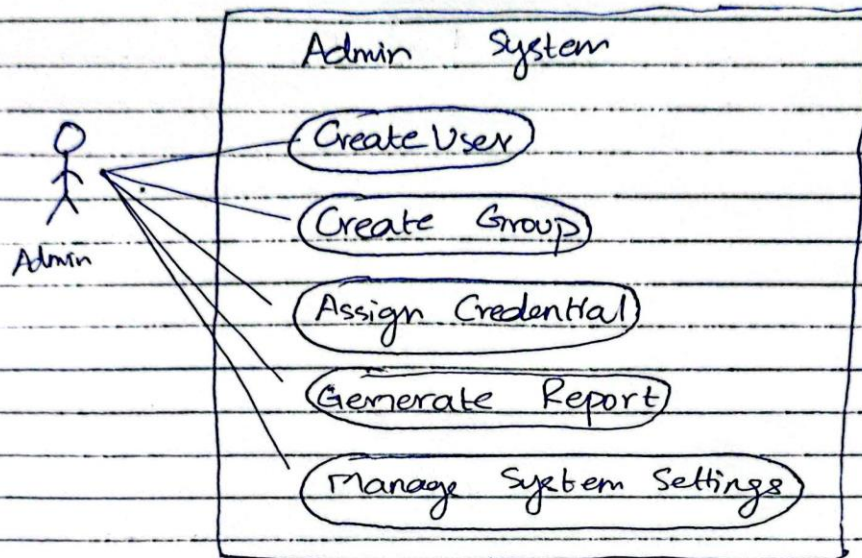 Admin System
Create User
Create Group
Admin
Assign Credential
Generate Report
Manage System Settings